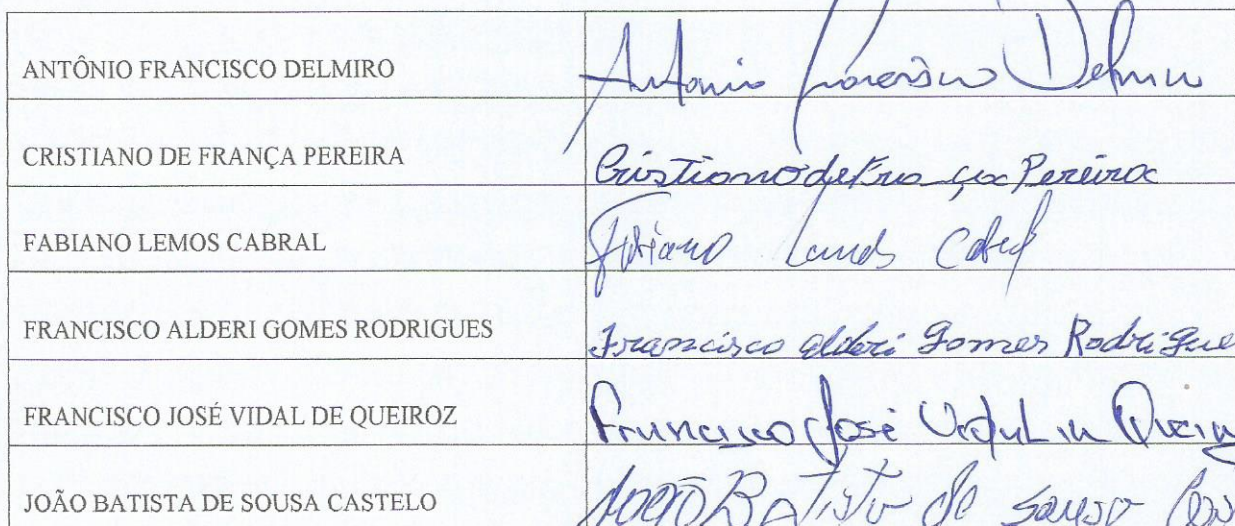 ANTÔNIO FRANCISCO DELMIRO Antonio Francisco Delmiro
CRISTIANO DE FRANÇA PEREIRA Cristiano de França Pereira
FABIANO LEMOS CABRAL Fabiano Lemos Cabral
FRANCISCO ALDERI GOMES RODRIGUES Francisco Alderi Gomes Rodrigue
FRANCISCO JOSÉ VIDAL DE QUEIROZ Francisco José Vidal de Queiroz
JOÃO BATISTA DE SOUSA CASTELO João Batista de Sousa